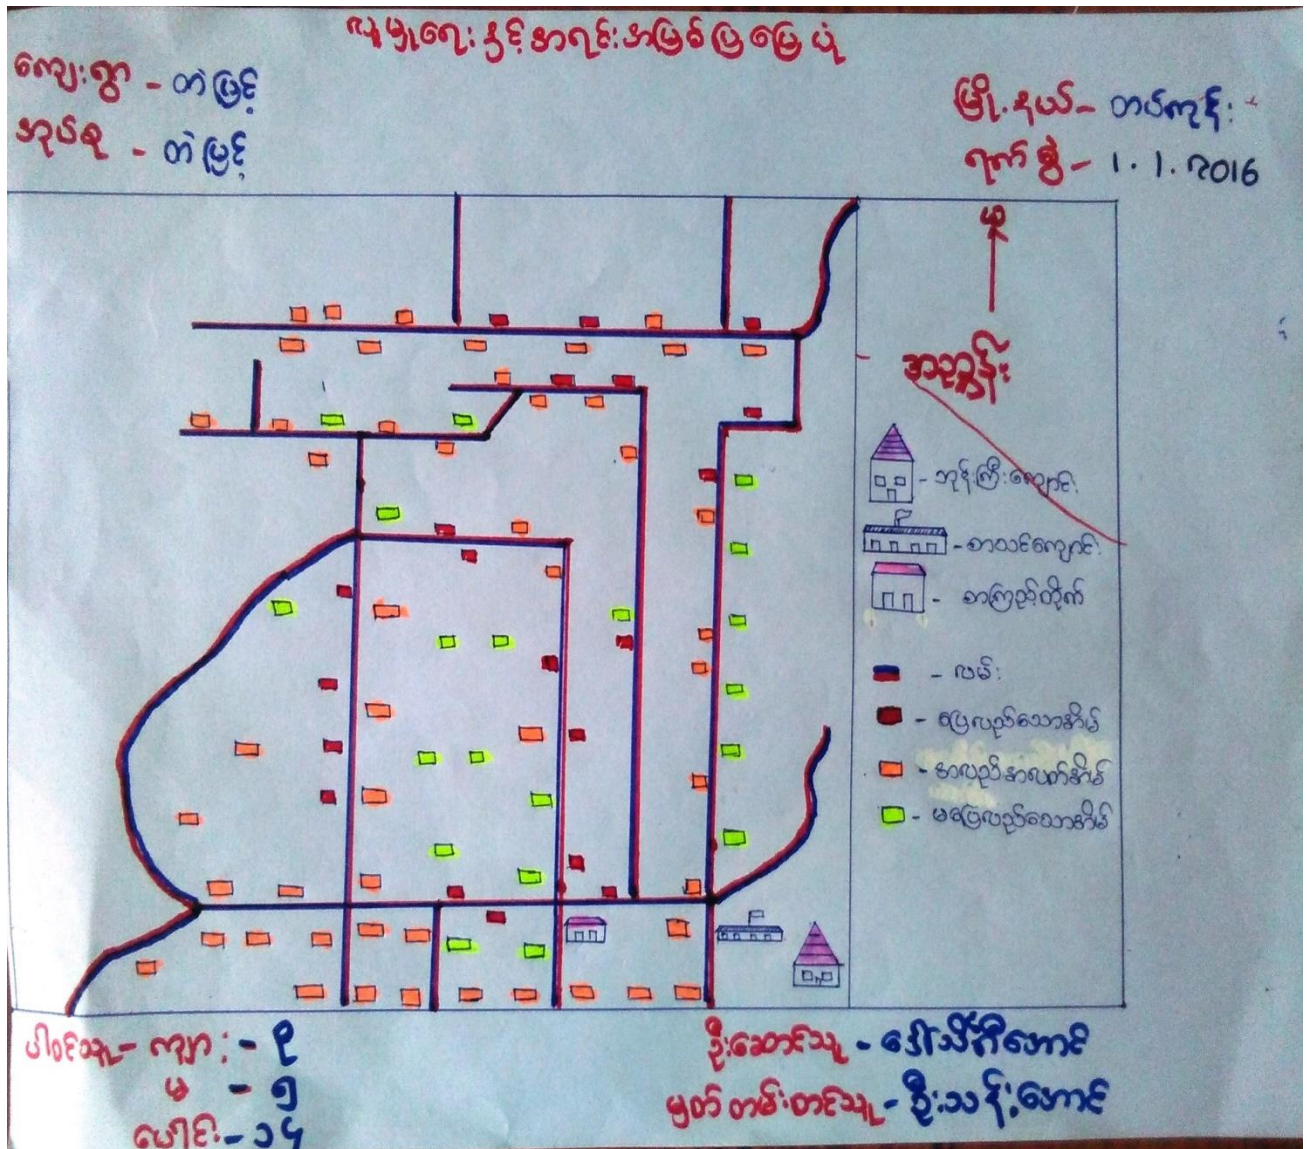 လူမှုရေးနှင့်အရင်းအမြစ်ပြမြေပုံ
ကျေးရွာ - တဲမြင့်
အုပ်စု - တဲမြင့်
မြို့နယ် - တပ်ကုန်း
ရက်စွဲ - 1.1.2016
အညွှန်း
- ဘုန်းကြီးကျောင်း
- စာသင်ကျောင်း
- စာကြည့်တိုက်
- လမ်း
- ပြေလည်သောအိမ်
- အလည်အလတ်အိမ်
- မပြေလည်သောအိမ်
ပါဝင်သူ - ကျား - ၉
မ - ၅
ပေါင်း - ၁၄
ဦးဆောင်သူ - ဒေါ်သီရိအောင်
မှတ်တမ်းတင်သူ - ဦးသန့်အောင်